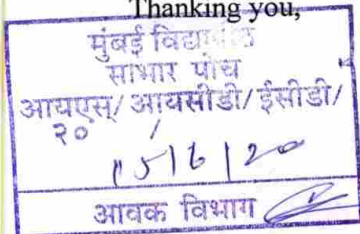 Thanking you,
मुंबई विद्यापीठ
साभार पोच
आयएस/ आयसीडी/ ईसीडी/
२०    /
15/6/20
आवक विभाग